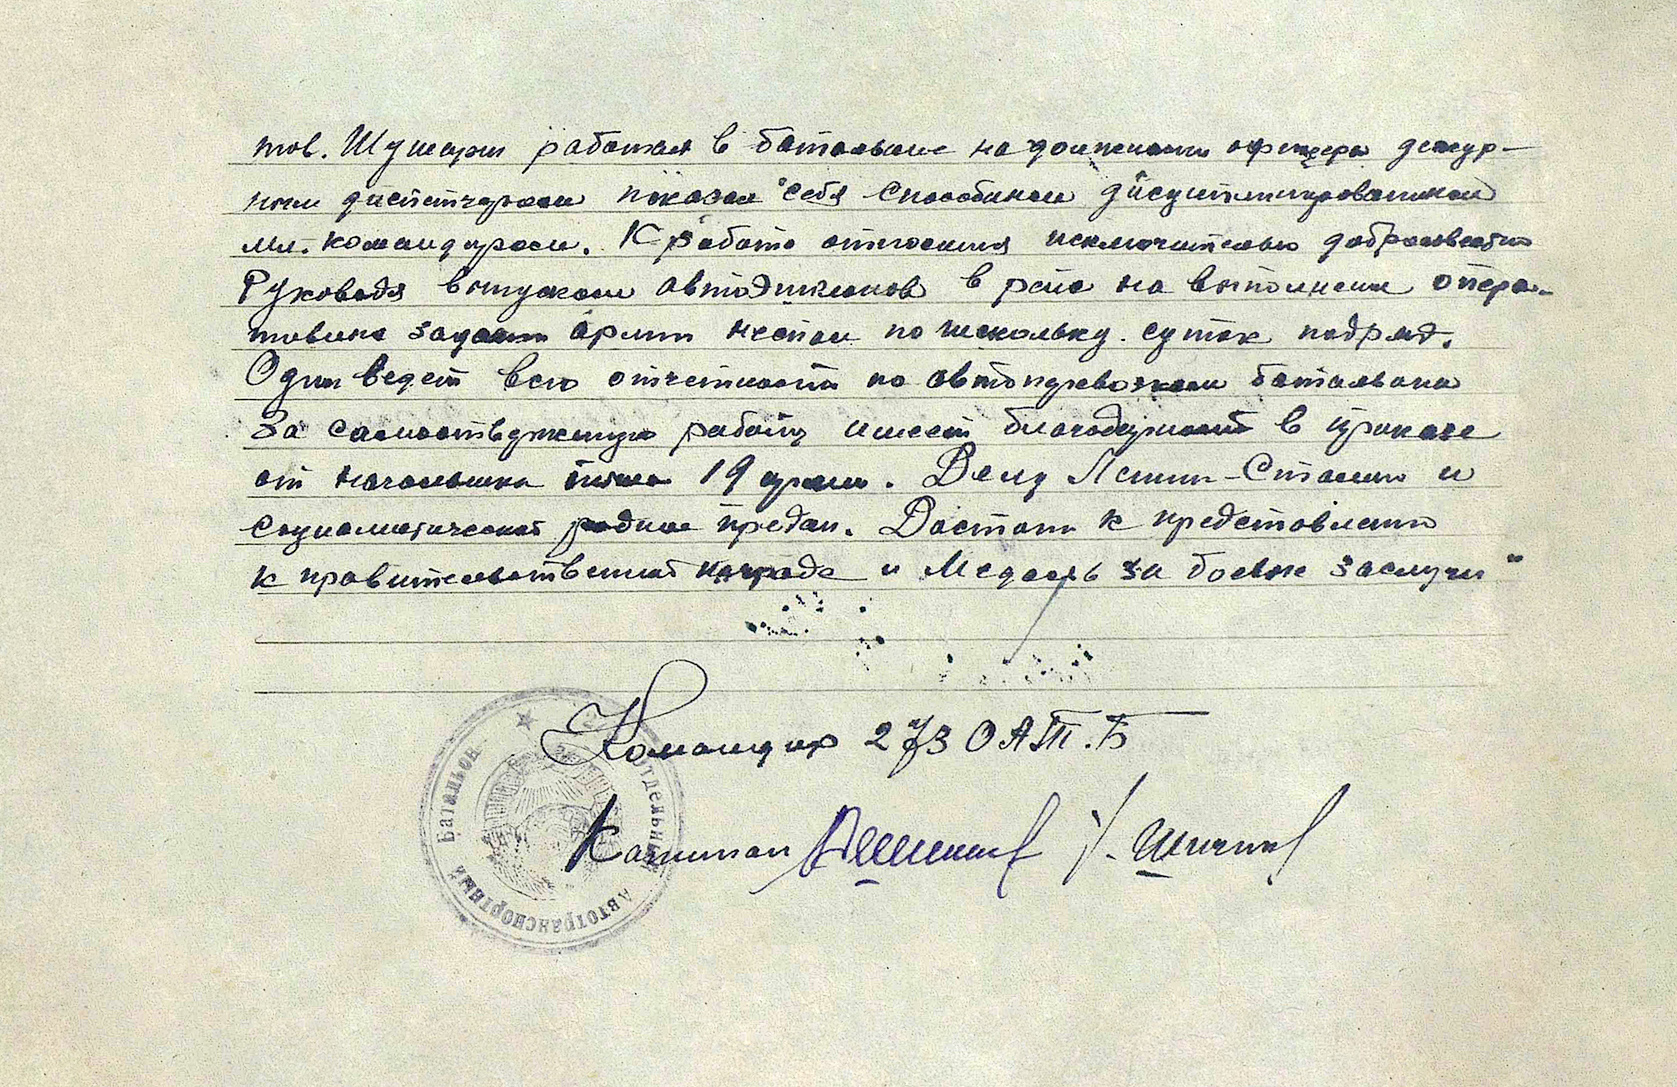 тов. Шушарин работая в батальоне на должности офицера дежур-
ным диспетчером показал себя способным дисциплинированным
мл. командиром. К работе относится исключительно добросовестно
Руководя выпуском автоэшелонов в рейс на выполнение опера-
тивных заданий армии не спал по нескольку суток подряд.
Один ведет всю отчетность по автоперевозкам батальона
За самоотверженную работу имеет благодарность в приказе
от начальника тыла 19 армии. Делу Ленина-Сталина и
социалистической родине предан. Достоин к представлению
к правительственной награде и Медаль за боевые заслуги"
Командир 273 ОАТ.Б
Капитан /. Шишкин/
Отдельный Автотранспортный Батальон